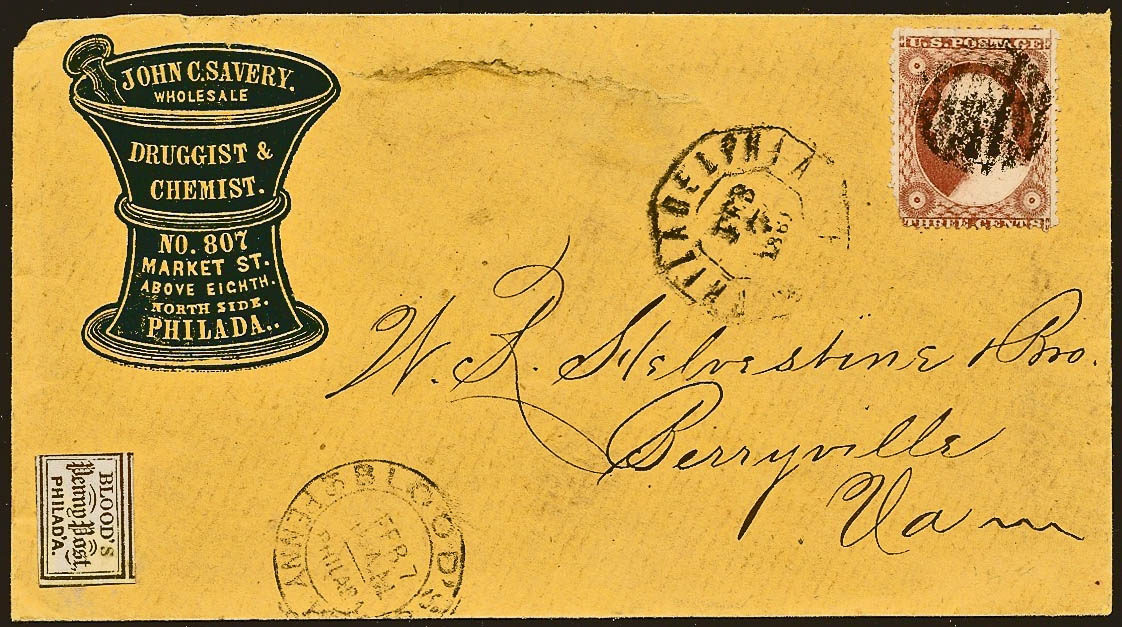 JOHN C. SAVERY.
WHOLESALE
DRUGGIST &
CHEMIST.
NO. 807
MARKET ST.
ABOVE EIGHTH.
NORTH SIDE.
PHILADA..
U.S. POSTAGE
THREE CENTS
PHILADELPHIA
FEB
7
W. L. Helvestine & Bro.
Berryville
Va
BLOOD'S
Penny Post,
PHILAD'A.
BLOOD'S PENNY
FEB 7
PHILAD